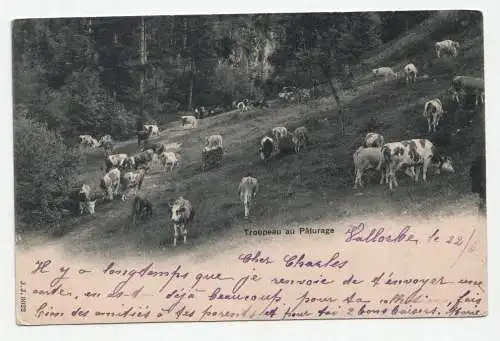 Troupeau au Pâturage
Vallorbe le 22/
Cher Charles
Il y a longtemps que je renvoie de t'envoyer une
carte, en as-t déjà beaucoup, pour ta collection, fais
bien des amitiés à tes parents et pour toi 2 bons baisers. Marie
J. J. 8022